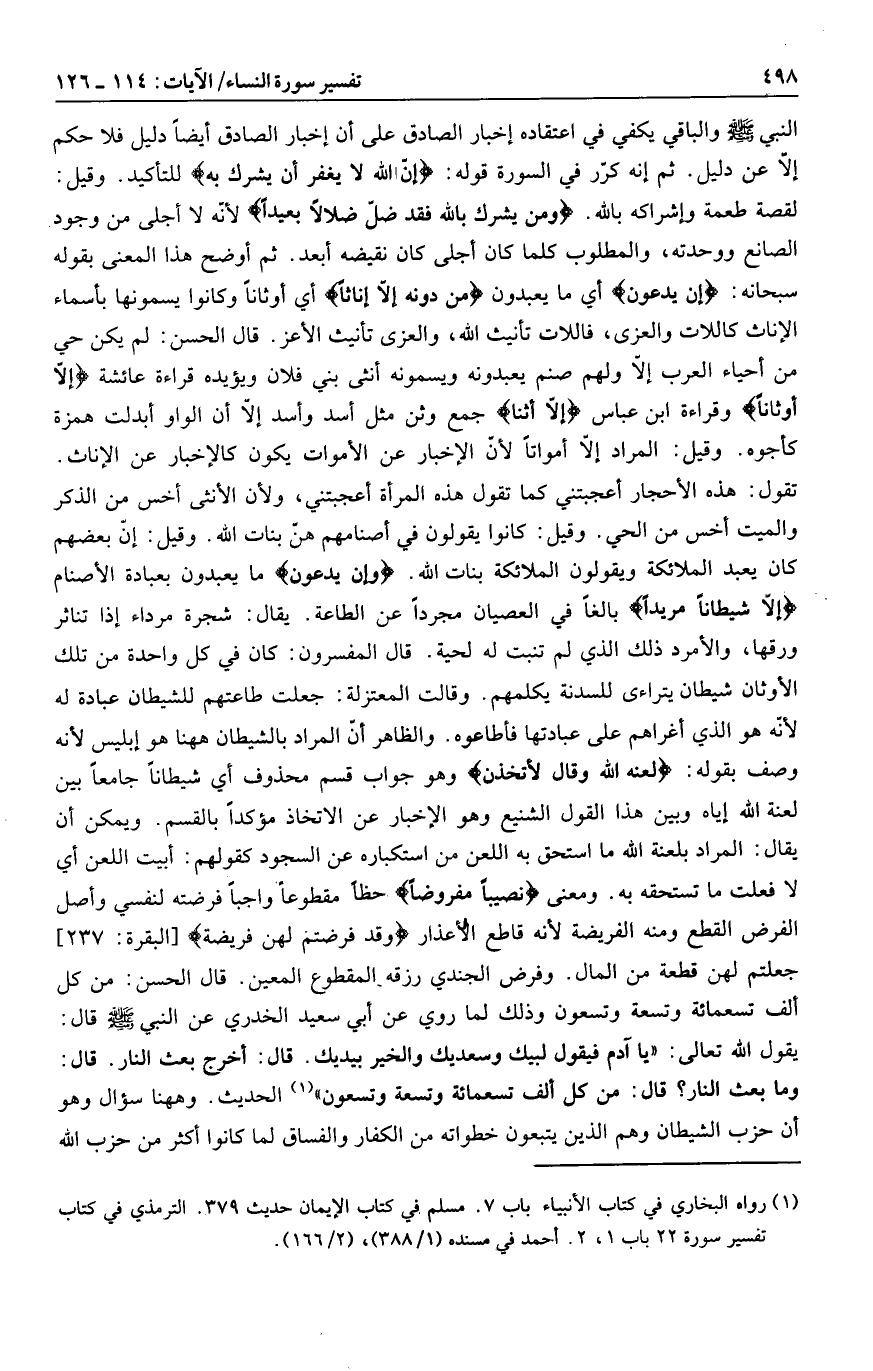 ٤٩٨
تفسير سورة النساء/ الآيات: ١١٤ - ١٢٦
النبي ﷺ والباقي يكفي في اعتقاده إخبار الصادق على أن إخبار الصادق أيضاً دليل فلا حكم
إلاّ عن دليل. ثم إنه كرّر في السورة قوله: ﴿إنّ الله لا يغفر أن يشرك به﴾ للتأكيد. وقيل:
لقصة طعمة وإشراكه بالله. ﴿ومن يشرك بالله فقد ضلّ ضلالاً بعيداً﴾ لأنّه لا أجلى من وجود
الصانع ووحدته، والمطلوب كلما كان أجلى كان نقيضه أبعد. ثم أوضح هذا المعنى بقوله
سبحانه: ﴿إن يدعون﴾ أي ما يعبدون ﴿من دونه إلاّ إناثاً﴾ أي أوثاناً وكانوا يسمونها بأسماء
الإناث كاللات والعزى، فاللات تأنيث الله، والعزى تأنيث الأعز. قال الحسن: لم يكن حي
من أحياء العرب إلاّ ولهم صنم يعبدونه ويسمونه أنثى بني فلان ويؤيده قراءة عائشة ﴿إلاّ
أوثاناً﴾ وقراءة ابن عباس ﴿إلاّ أثنا﴾ جمع وثن مثل أسد وأسد إلاّ أن الواو أبدلت همزة
كأجوه. وقيل: المراد إلاّ أمواتاً لأنّ الإخبار عن الأموات يكون كالإخبار عن الإناث.
تقول: هذه الأحجار أعجبتني كما تقول هذه المرأة أعجبتني، ولأن الأنثى أخس من الذكر
والميت أخس من الحي. وقيل: كانوا يقولون في أصنامهم هنّ بنات الله. وقيل: إنّ بعضهم
كان يعبد الملائكة ويقولون الملائكة بنات الله. ﴿وإن يدعون﴾ ما يعبدون بعبادة الأصنام
﴿إلاّ شيطاناً مريداً﴾ بالغاً في العصيان مجرداً عن الطاعة. يقال: شجرة مرداء إذا تناثر
ورقها، والأمرد ذلك الذي لم تنبت له لحية. قال المفسرون: كان في كل واحدة من تلك
الأوثان شيطان يتراءى للسدنة يكلمهم. وقالت المعتزلة: جعلت طاعتهم للشيطان عبادة له
لأنّه هو الذي أغراهم على عبادتها فأطاعوه. والظاهر أنّ المراد بالشيطان ههنا هو إبليس لأنه
وصف بقوله: ﴿لعنه الله وقال لأتخذن﴾ وهو جواب قسم محذوف أي شيطاناً جامعاً بين
لعنة الله إياه وبين هذا القول الشنيع وهو الإخبار عن الاتخاذ مؤكداً بالقسم. ويمكن أن
يقال: المراد بلعنة الله ما استحق به اللعن من استكباره عن السجود كقولهم: أبيت اللعن أي
لا فعلت ما تستحقه به. ومعنى ﴿نصيباً مفروضاً﴾ حظاً مقطوعاً واجباً فرضته لنفسي وأصل
الفرض القطع ومنه الفريضة لأنه قاطع الأعذار ﴿وقد فرضتم لهن فريضة﴾ [البقرة: ٢٣٧]
جعلتم لهن قطعة من المال. وفرض الجندي رزقه المقطوع المعين. قال الحسن: من كل
ألف تسعمائة وتسعة وتسعون وذلك لما روي عن أبي سعيد الخدري عن النبي ﷺ قال:
يقول الله تعالى: «يا آدم فيقول لبيك وسعديك والخير بيديك. قال: أخرج بعث النار. قال:
وما بعث النار؟ قال: من كل ألف تسعمائة وتسعة وتسعون»(١) الحديث. وههنا سؤال وهو
أن حزب الشيطان وهم الذين يتبعون خطواته من الكفار والفساق لما كانوا أكثر من حزب الله
(١) رواه البخاري في كتاب الأنبياء باب ٧. مسلم في كتاب الإيمان حديث ٣٧٩. الترمذي في كتاب
تفسير سورة ٢٢ باب ١، ٢. أحمد في مسنده (١/ ٣٨٨)، (٢/ ١٦٦).